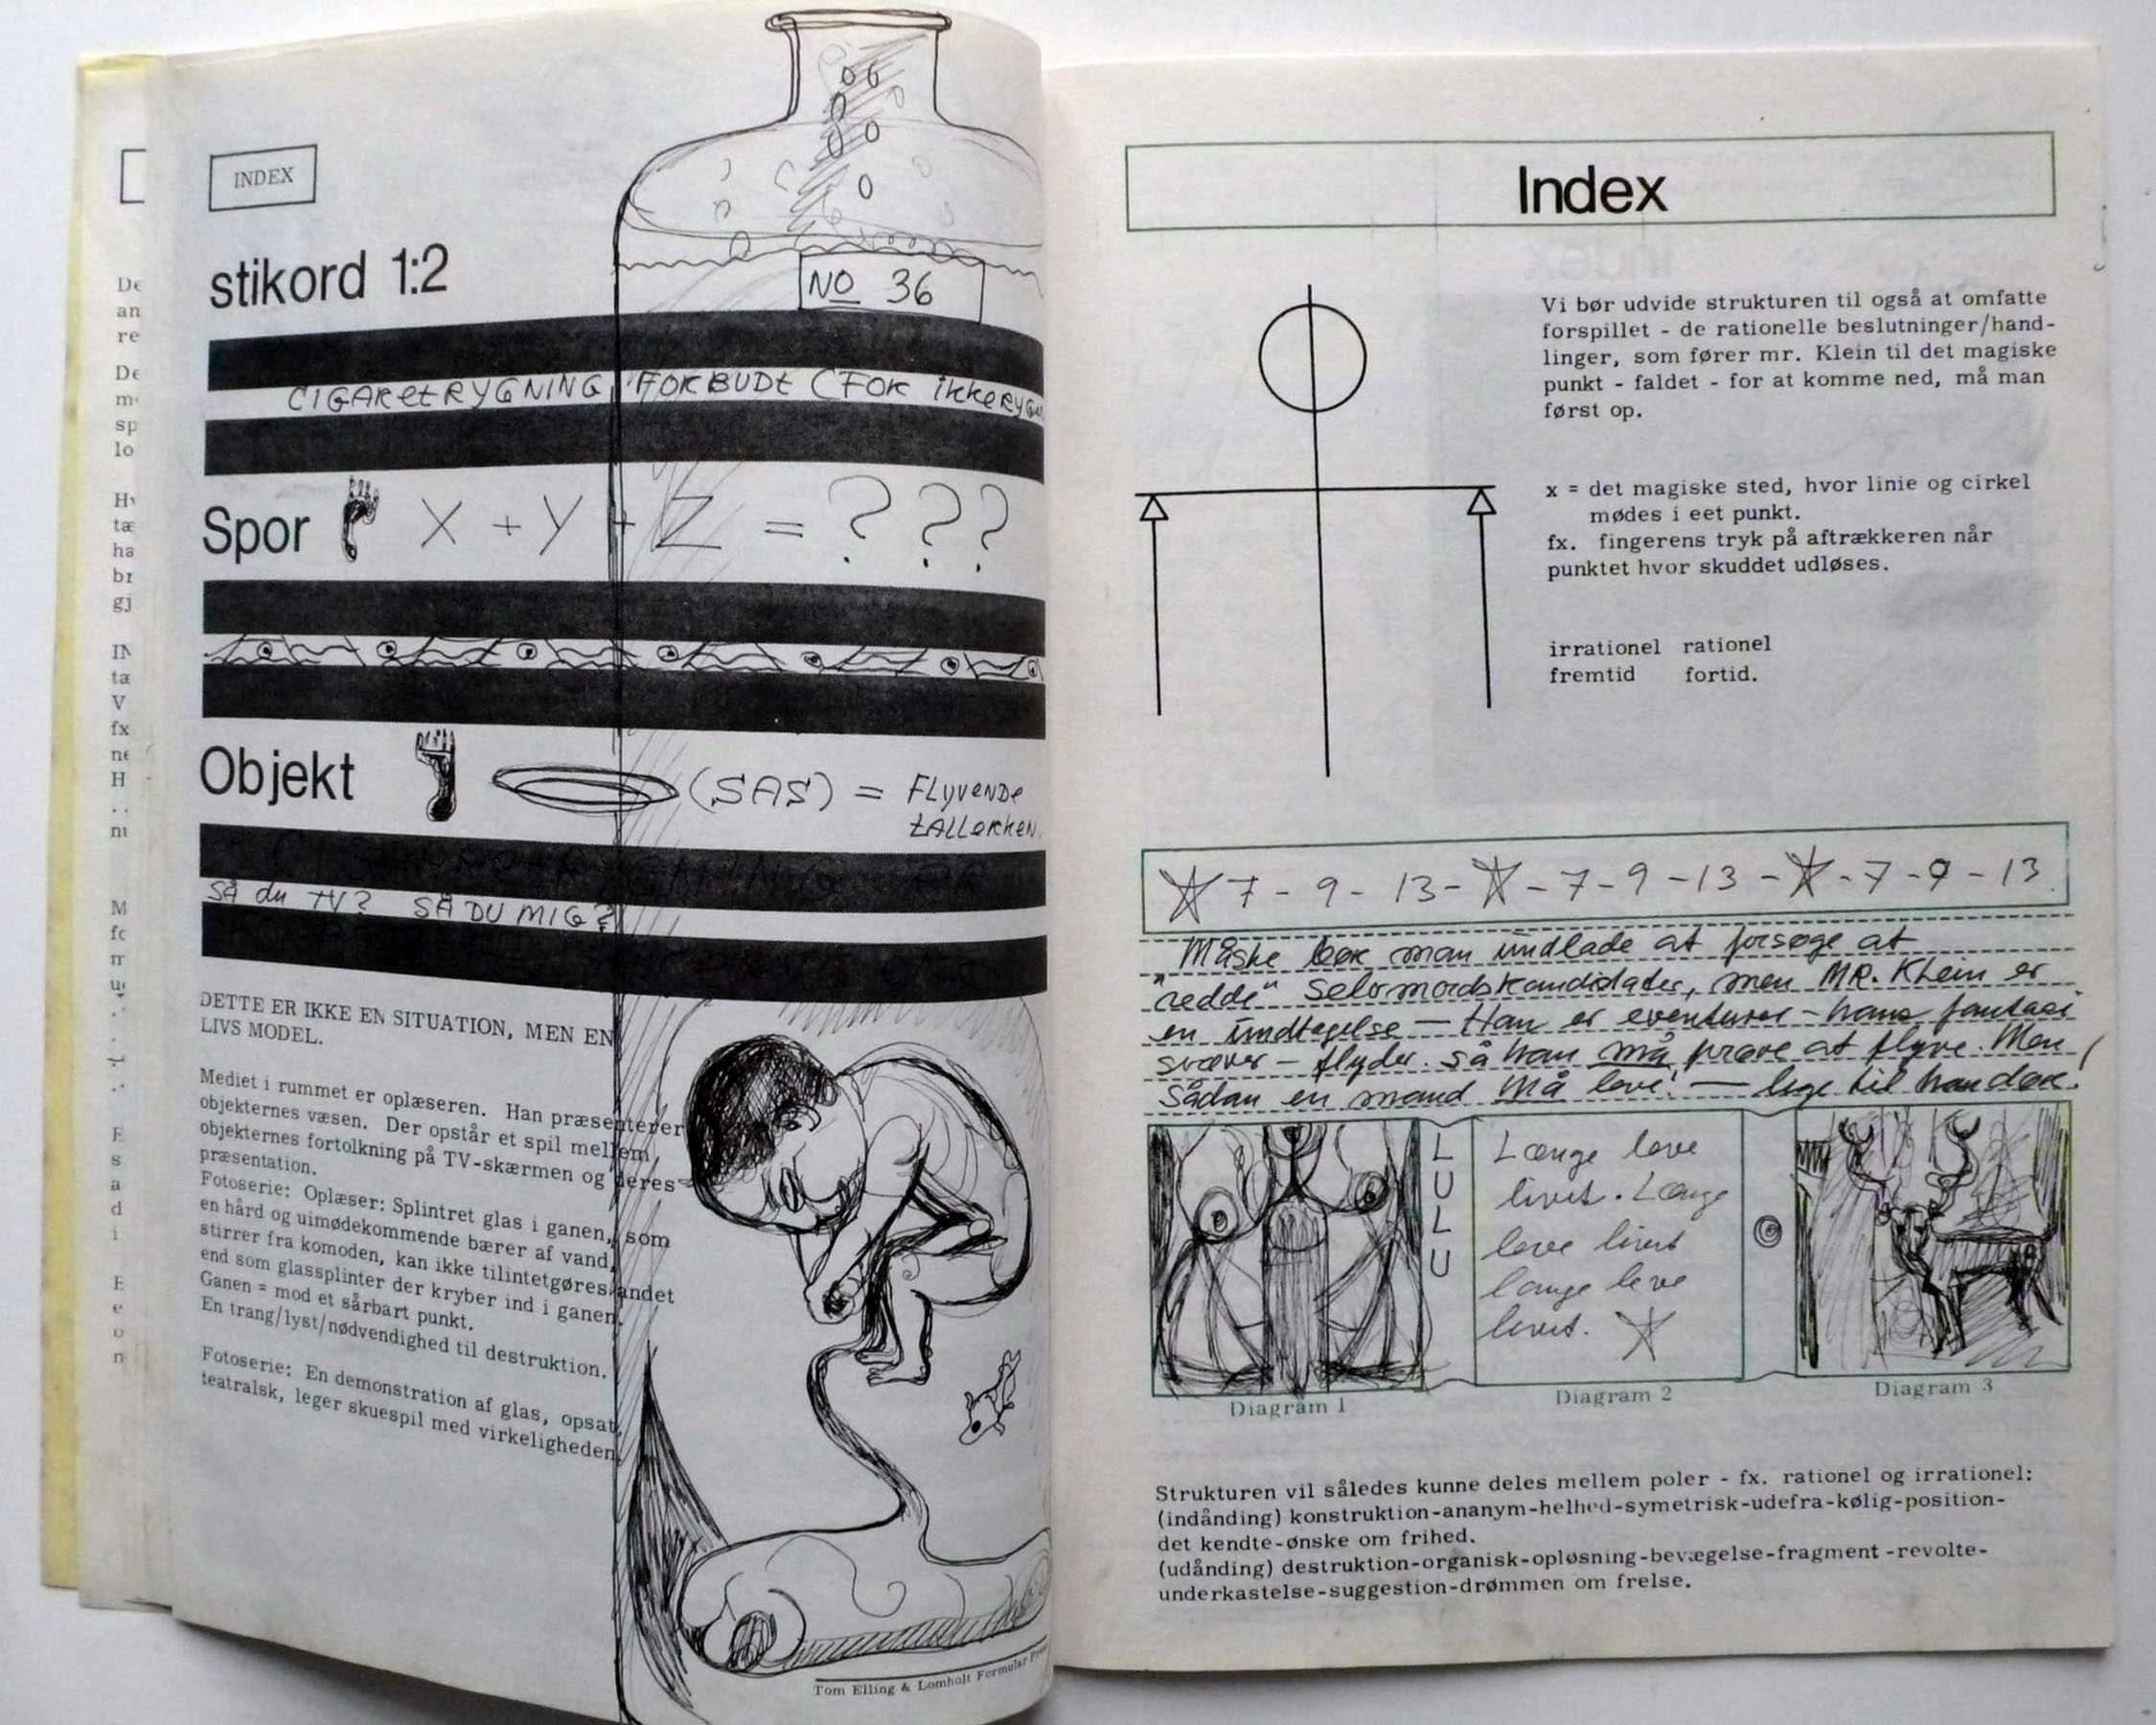 INDEX
stikord 1:2
NO 36
CIGARetRYGNING FORBUDt (FOR ikkeRYG
Spor X + Y + Z = ? ? ?
Objekt (SAS) = FLyveNDe
tALLerkeN.
SÅ du TV? SÅ DU MIG?
DETTE ER IKKE EN SITUATION, MEN EN
LIVS MODEL.
Mediet i rummet er oplæseren. Han præsenterer
objekternes væsen. Der opstår et spil mellem
objekternes fortolkning på TV-skærmen og deres
præsentation.
Fotoserie: Oplæser: Splintret glas i ganen, som
en hård og uimødekommende bærer af vand,
stirrer fra komoden, kan ikke tilintetgøres andet
end som glassplinter der kryber ind i ganen.
Ganen = mod et sårbart punkt.
En trang/lyst/nødvendighed til destruktion.
Fotoserie: En demonstration af glas, opsat,
teatralsk, leger skuespil med virkeligheden
Tom Elling & Lomholt Formular
Index
Vi bør udvide strukturen til også at omfatte
forspillet - de rationelle beslutninger/hand-
linger, som fører mr. Klein til det magiske
punkt - faldet - for at komme ned, må man
først op.
x = det magiske sted, hvor linie og cirkel
mødes i eet punkt.
fx. fingerens tryk på aftrækkeren når
punktet hvor skuddet udløses.
irrationel rationel
fremtid fortid.
7 - 9 - 13 - - 7 - 9 - 13 - - 7 - 9 - 13
Måske bør man undlade at forsøge at
"redde" selvmordskandidater, men MR. KLein er
en undtagelse — Han er eventurer - hans fantasi
svæver - flyder. Så han må prøve at flyve. Men
Sådan en mand må leve! — lige til han dør.
LULU
Længe leve
livet. Længe
leve livet
længe leve
livet.
Diagram 1
Diagram 2
Diagram 3
Strukturen vil således kunne deles mellem poler - fx. rationel og irrationel:
(indånding) konstruktion-ananym-helhed-symetrisk-udefra-kølig-position-
det kendte-ønske om frihed.
(udånding) destruktion-organisk-opløsning-bevægelse-fragment -revolte-
underkastelse-suggestion-drømmen om frelse.